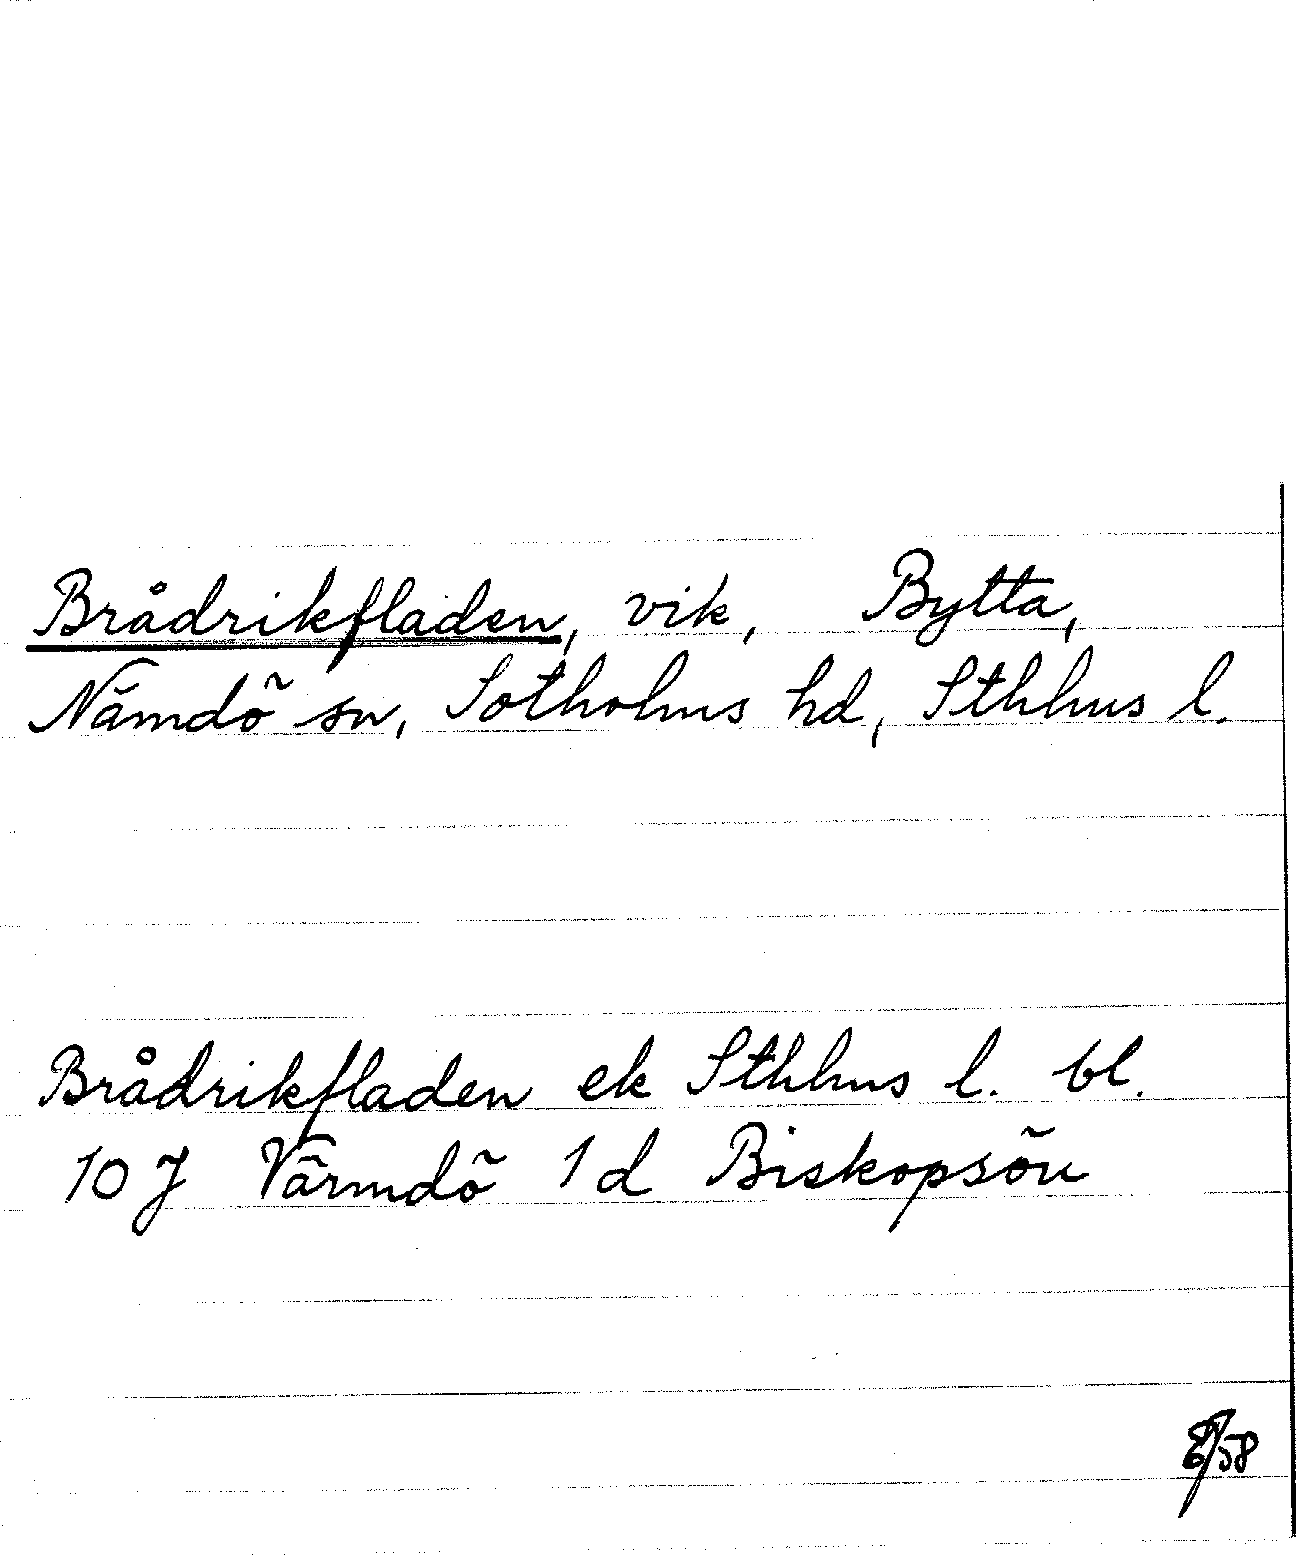 Brådrikfladen, vik, Bytta,
Nämdö sn, Sotholms hd, Sthlms l.
Brådrikfladen ek Sthlms l. bl.
10 J Värmdö 1 d Biskopsön
/58